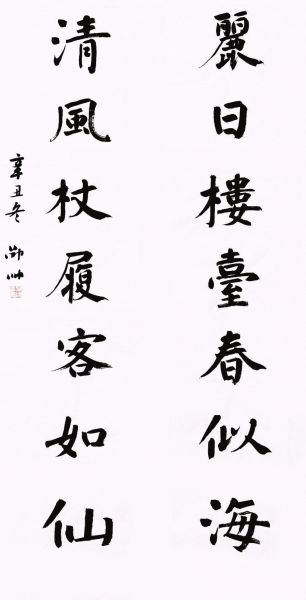 麗日樓臺春似海
清風杖履客如仙
辛丑冬